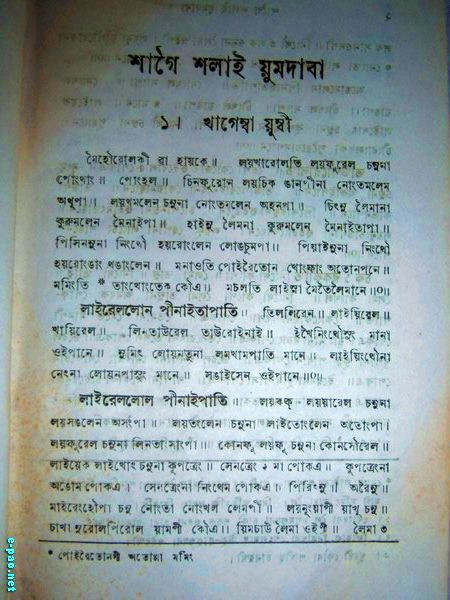 শাগৈ শলাই য়ুমদাবা
১। খাগেম্বা য়ুম্বী
মৈহৌরোলকী ৱা হায়কে॥ লয়খারোলতি লয়ফুরেল চন্নুনা
পোংথাং॥ পোংহল॥ চিনফুরোন্ লয়চিক ঙানপীনা নোংতমলেম্
অথুপা॥ লয়থুমলেন্ চন্নুনা নোংতনলেন অহনপা॥ চিংন্নু লৈমানা
কুরুমলেন মৈনাইপা॥ হাইন্নু লৈমনা কুরুমলেন মৈনাইতাপা॥
পিসিনন্নুনা নিংথৌ হয়রোংলেন লোঙচুমপা॥ পিয়াইন্নুনা নিংথৌ
হয়রোংঙাং থঙাংলেন॥ মনাওতি পোইরৈতোন খোংফাং অতোনপনে॥
মমিংতি * তাংখোংতেক কৌএ॥ মচলতি লাইস্না মৈতৈলৈমানে॥০॥
লাইরেললোন পীনাইতাপাতি॥ তিললিরেন॥ লাইয়িরেল॥
খায়িরেল॥ লিনতাউরেল তাউরোইনাই॥ ইখৈনিংথৌস্নুং মানা
ওইপানে॥ মুমিং লোয়নতুনা লমথামপাতি মানে॥ লাইয়িংথৌনা
নেংনা লোয়নপাস্নুং মানে॥ সঙাইসেন ওইপানে॥০॥
লাইরেললোল পীনাইপাতি॥ লয়কক্ লয়য়ারেল চন্নুনা
লয়সঙলেন অসংপা॥ লয়তংলেন চন্নুনা লাইতোংলেন ততোংপা।
লয়ফুরেল চন্নুনা লিনতা সাংপা॥ কোনফু লয়ফু চন্নুনা কোনসৌরেল॥
লাইয়েক লাইখোং চন্নুনা কুপত্রেং॥ সেনত্রেং ২ মা পোকএ॥ কুপত্রেংনা
অঙোম পোকএ। সেনত্রেংনা নিংথেম পোকএ॥ পিরিংন্নু॥ অরৈন্নু॥
মাইরেংহৌপা চন্নু নোংতা নোংখল লেমপী॥ লয়নুংয়াপী য়াখু চন্নু॥
চাখা নুরোলপিরোল য়ামপী কৌএ॥ য়িমচাউ লৈমা ওইপী॥ লৈমা ৩
* পোইরৈতোনগী অতোপ্পা মমিং
e-pao.net